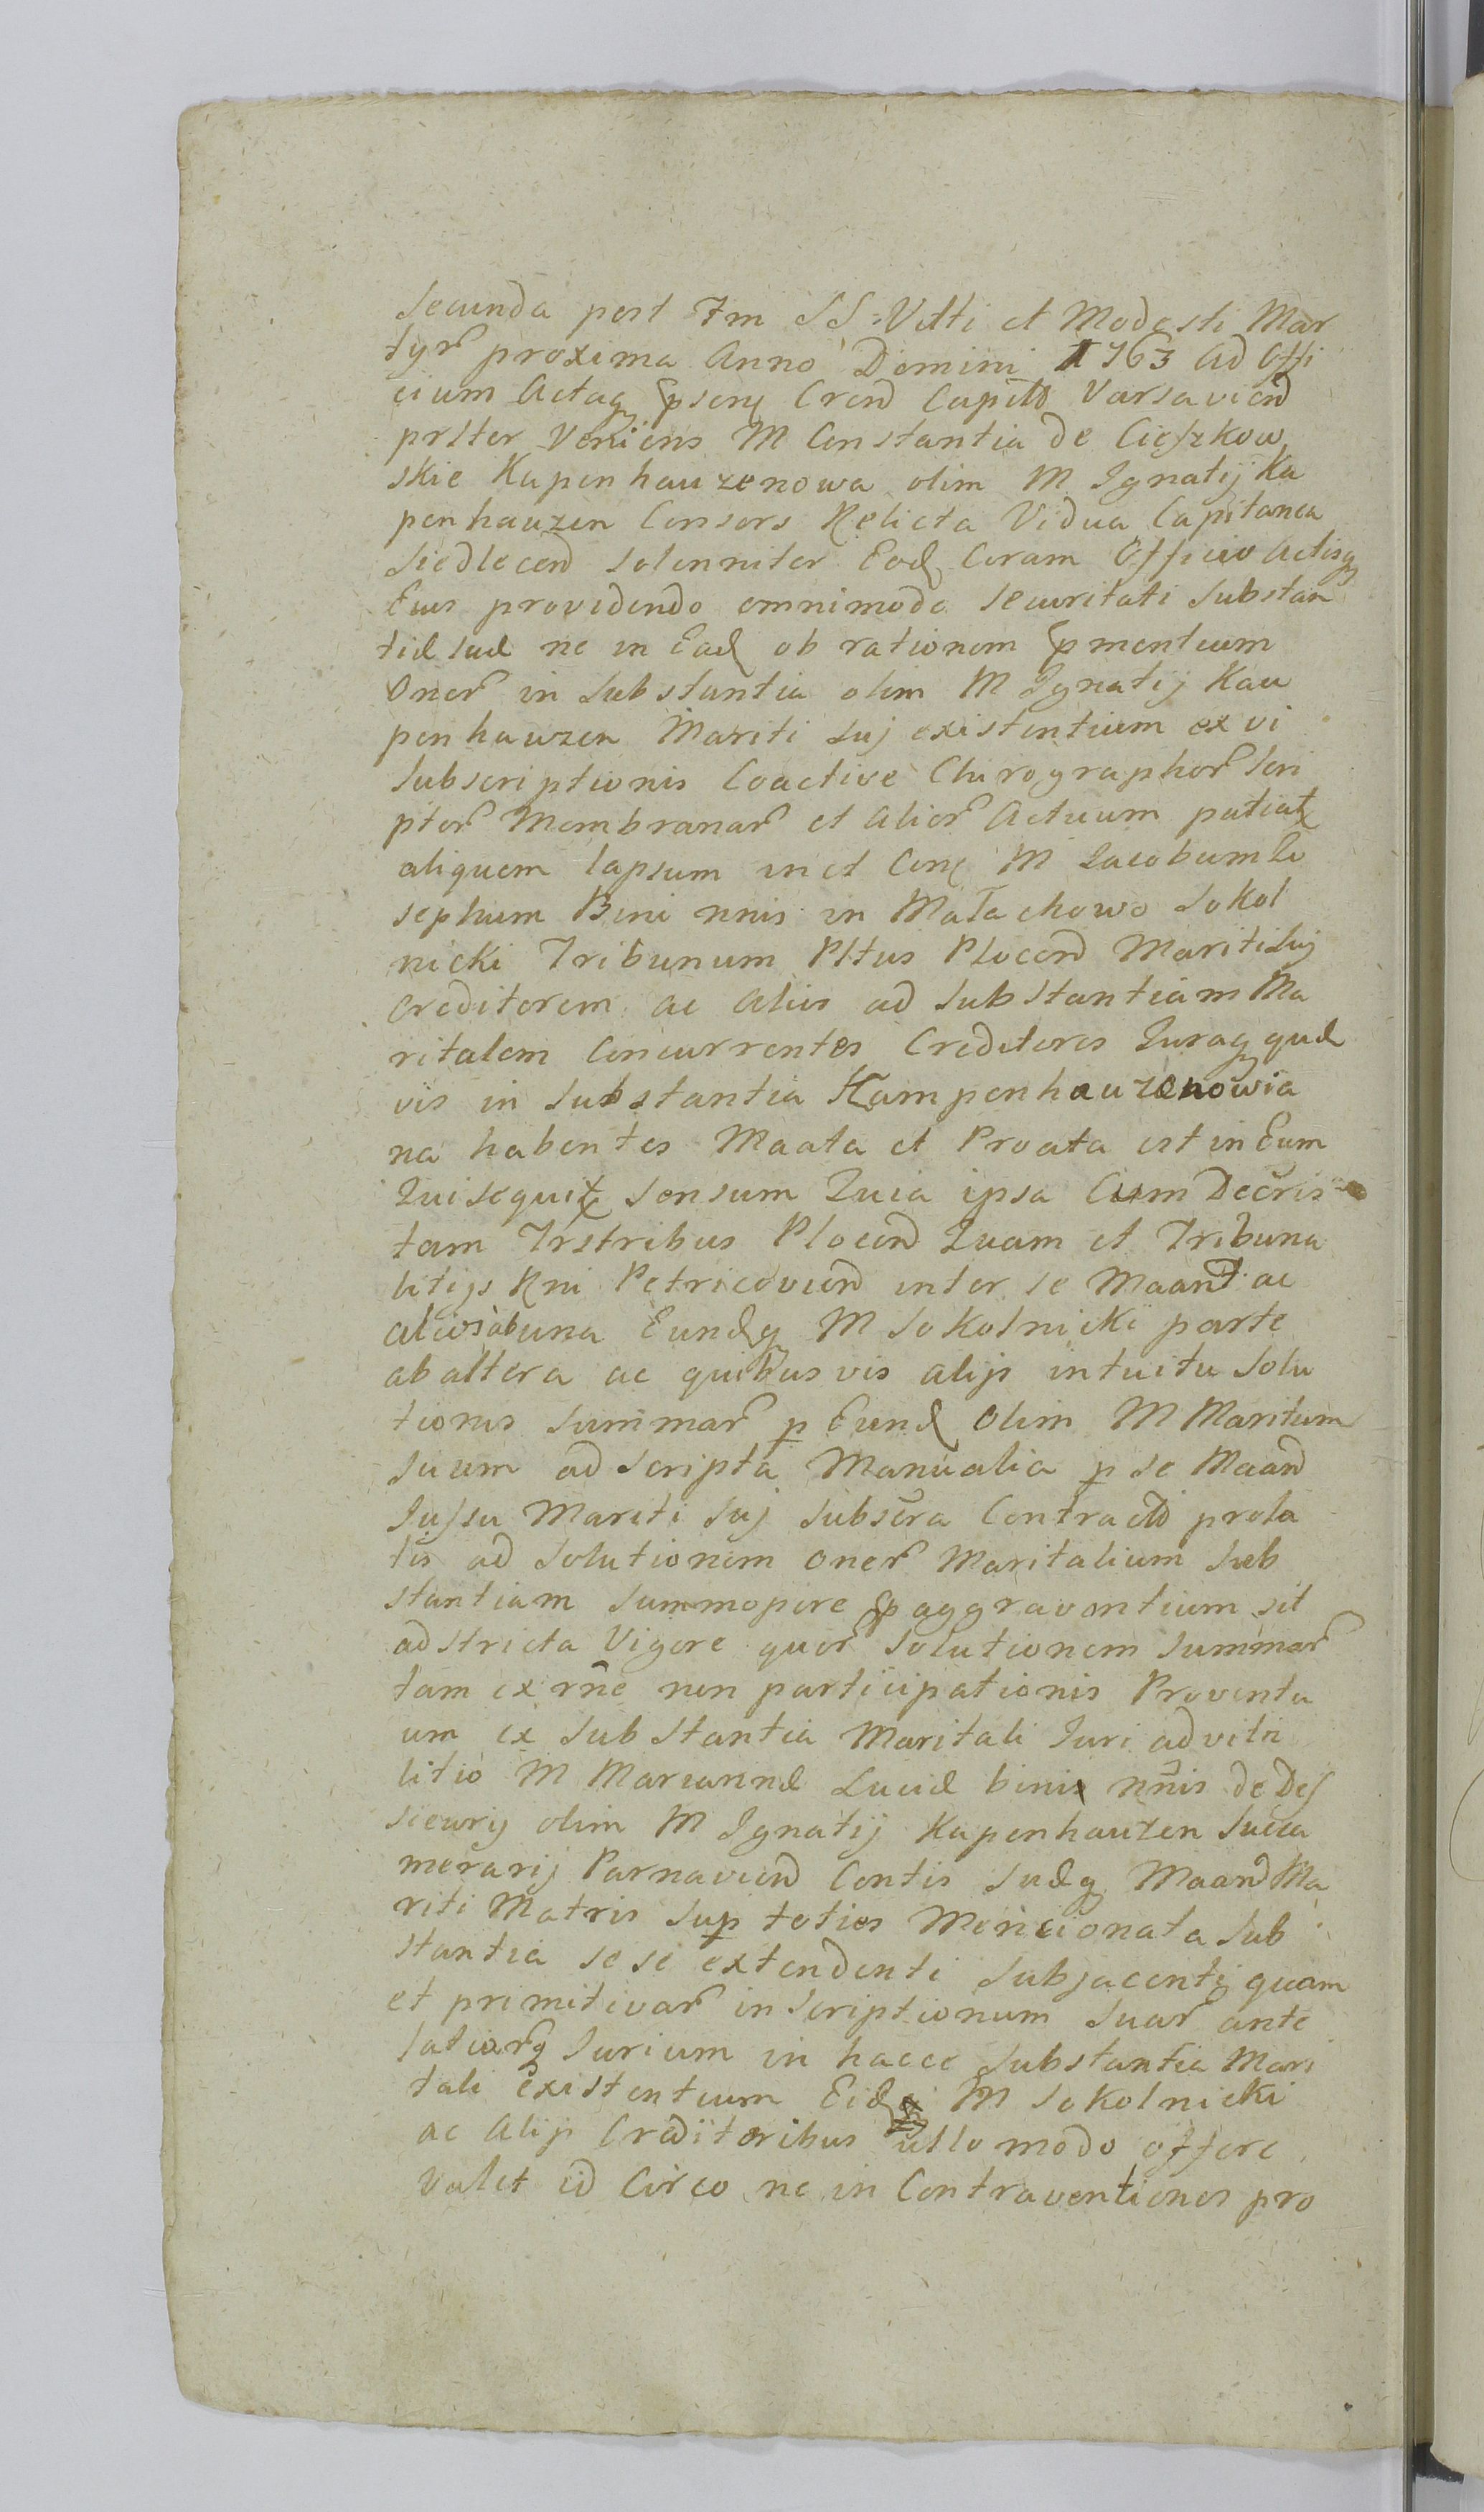 Secunda post Fm SS. Vitti et Modesti Mar
tyr proxima Anno Domini 1763 Ad Offi
cium Actaq psens Crend Capitlo Varsaviend
prlter Veniens M Constantia de Cieszkow
skie Kapenhauzenowa olim M Ignatij Ka
penhauzen Consors Relicta Vidua Capitanea
Siedlecend Solenniter Eod Coram Officio Actisq
Eius providendo omnimodo Securitati Substan
tiæ suæ ne in Ead ob rationem pmentium
Oner in Substantia olim M Ignatij Kau
penhauzen Mariti Suj existentium ex vi
Subscriptionis Coactive Chirographor Scri
ptor Membranar et Alior Actuum patiat
aliquem lapsum in et Con M Jacobum Jo
sephum Bini nnis in Małachowo Sokol
nicki Tribunum Pltus Plocend Mariti Suj
Creditorem ac Alios ad Substantiam Ma
ritalem Concurrentes Creditores Juraq quæ
vis in Substantia Kampenhauzenowia
na habentes Maata et Proata est in Eum
Qui sequit Sensum Quia ipsa Cum Decris
tam Trstribus Plocend Quam et Tribuna
litijs Rni Petricoviend inter se Maand ac
alios ab una Eundq M Sokolnicki parte
ab altera ac quibusvis alijs intuitu Solu
tionis Summar p Eund Olim M Maritum
Suum ad Scripta Manualia p se Maand
Jussu Mariti Suj Subscra Contracto prola
tis ad Solutionem Oner Maritalium Sub
stantiam Summopere paggravantium sit
adstricta Vigore quor Solutionem Summar
tam ex rne non participationis Proventu
um ex Substantia Maritali Juri advita
litio M Mariannæ Luciæ binis nnis de Des
sieurij olim M Ignatij Kapenhauzen Succa
merarij Parnaviend Contis Suæq Maand Ma
riti Matris Sup toties Mencionata Sub
stantia sese extendenti Subjacenti quam
et primitivar inscriptionum Suar ante
latiorq Jurium in hacce Substantia Mari
tali existentium Eid M Sokolnicki
ac Alijs Creditoribus ullo modo offere
valet id Circo ne in Contraventiones pro